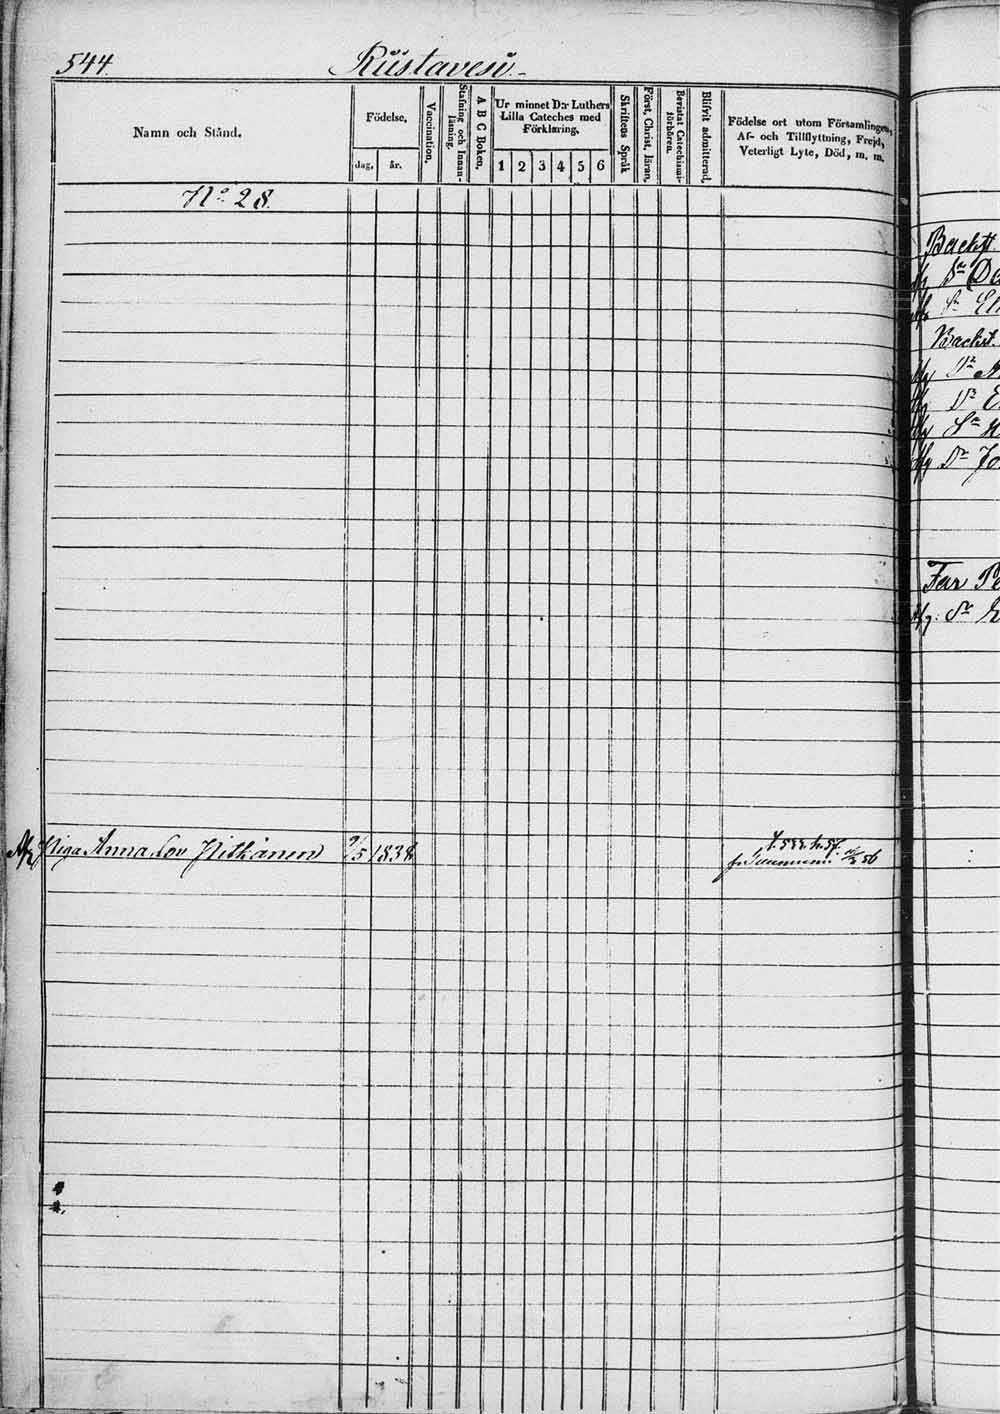 544. Riistavesi.
Namn och Stånd.
Födelse,
dag,
år.
Vaccination.
Stafning och Innanläsning.
A B C Boken.
Ur minnet D:r Luthers
Lilla Cateches med
Förklaring.
1 2 3 4 5 6
Skriftens Språk
Först. Christ. läran.
Bevistat Catechismiförhören.
Blifvit admitterad.
Födelse ort utom Församlingen,
Af- och Tillflyttning, Frejd,
Veterligt Lyte, Död, m. m.
No 28.
Piga Anna Lov Pitkänen 9/5 1838
56
Backst.
Dr
Sr
Backst.
Dr
Dr
Sr
Dr Jo
Far Pe
Sr